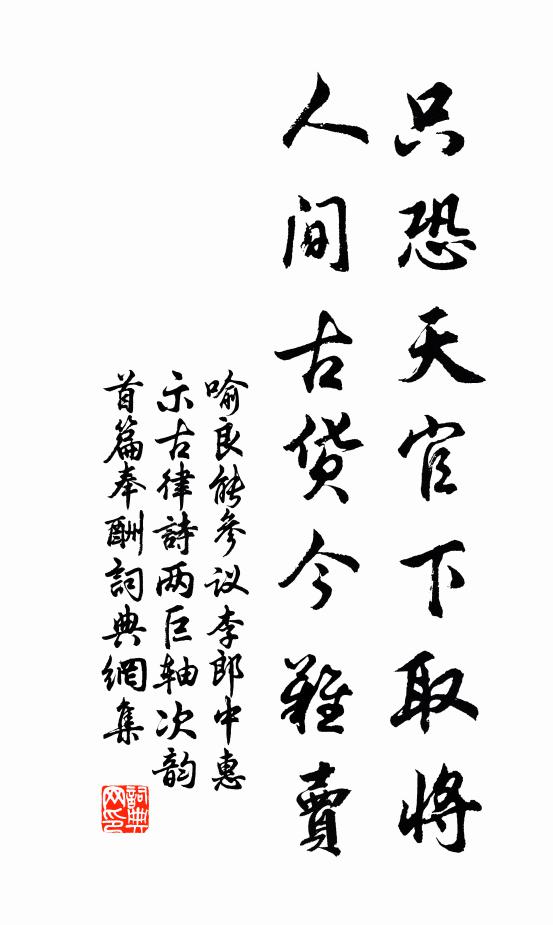 只恐天官下取将
人间古货今難賣
喻良能參议李郎中惠
示古律詩两巨轴次韵
首篇奉酬詞典網集
詞典
网印